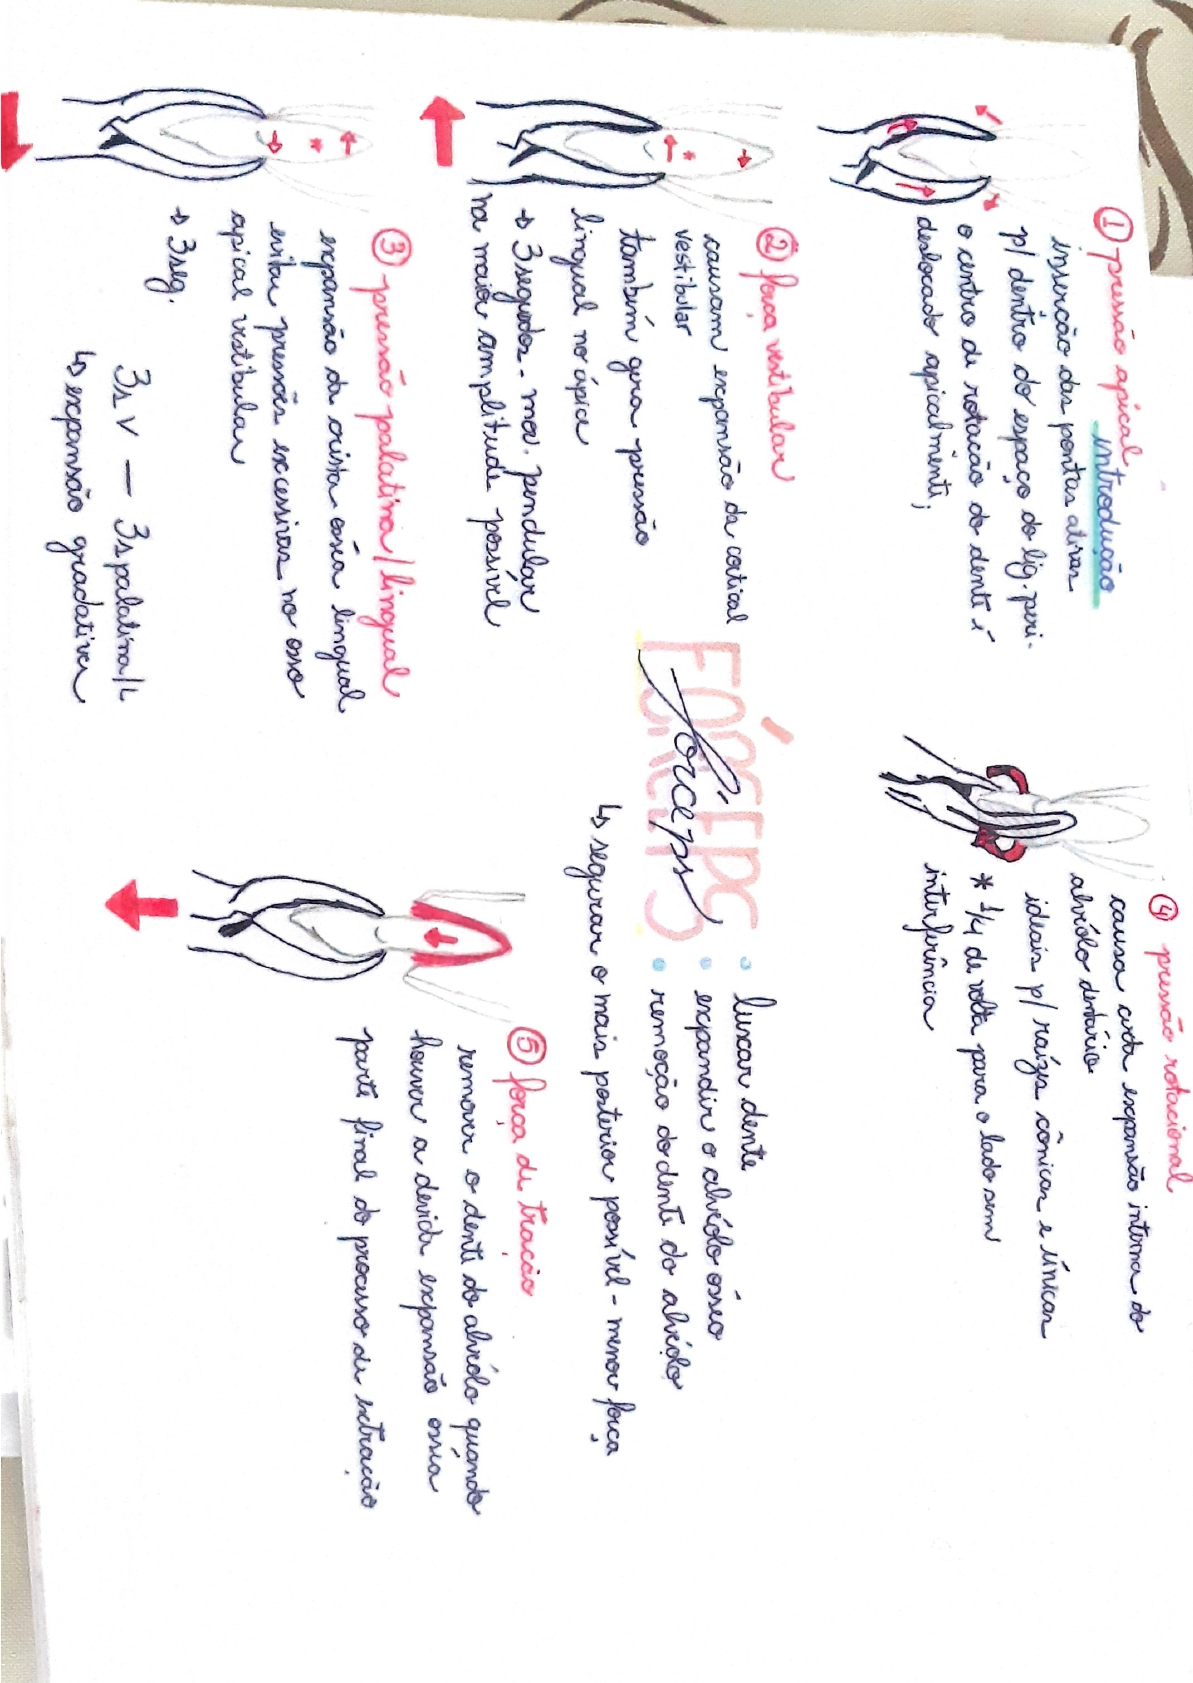 introdução
① pressão apical
inserção das pontas ativas
p/ dentro do espaço do lig. peri.
o centro de rotação do dente é
deslocado apicalmente;
② força vestibular
causam expansão da cortical
vestibular
também gera pressão
lingual no ápice
→ 3 segundos - mov. pendular
na maior amplitude possível
③ pressão palatina/lingual
expansão da crista óssea lingual
evitar pressões excessivas no osso
apical vestibular
→ 3 seg.
3s V — 3s palatina/L
↳ expansão gradativa
FÓRCEPS
fórceps
• luxar dente
• expandir o alvéolo ósseo
• remoção do dente do alvéolo
↳ segurar o mais posterior possível - menor força
④ pressão rotacional
causa certa expansão interna do
alvéolo dentário
ideais p/ raízes cônicas e únicas
* 1/4 de volta para o lado sem
interferência
⑤ força de tração
remover o dente do alvéolo quando
houver a devida expansão óssea
parte final do processo de extração